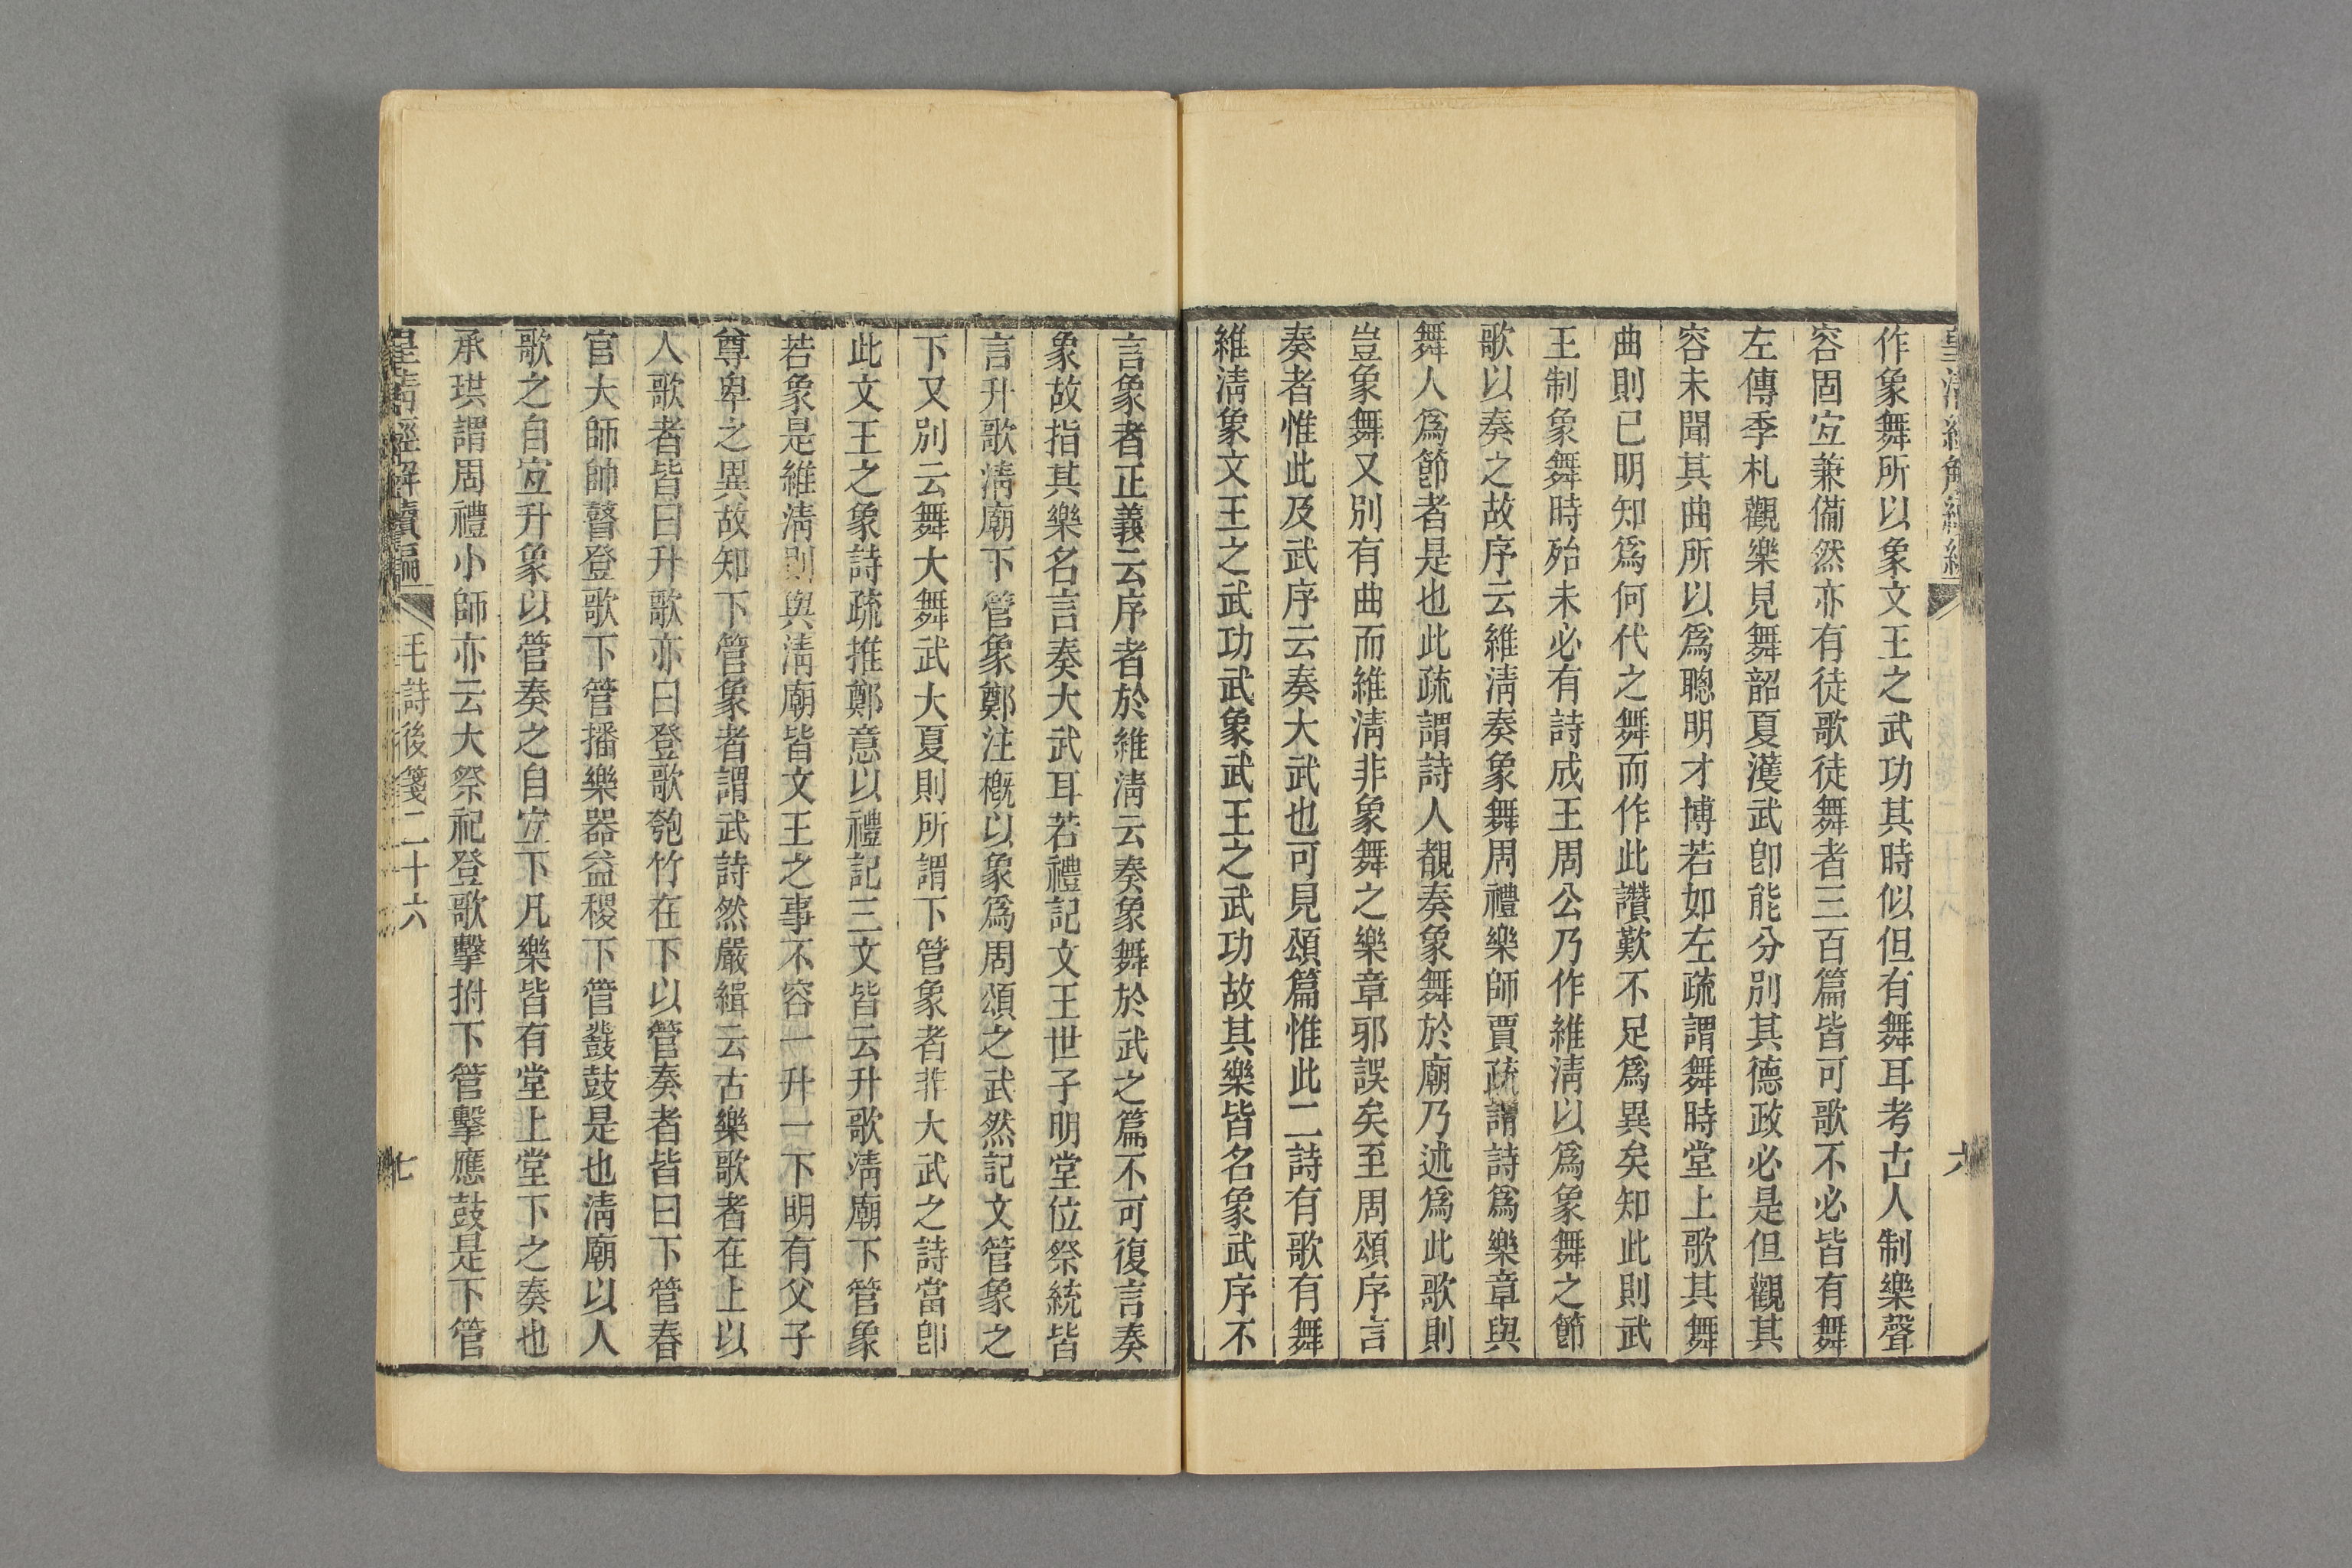 作象舞所以象文王之武功其時似但有舞耳考古人制樂聲
容固宐兼備然亦有徒歌徒舞者三百篇皆可歌不必皆有舞
左傳季札觀樂見舞韶夏濩武卽能分別其德政必是但觀其
容未聞其曲所以爲聰明才博若如左疏謂舞時堂上歌其舞
曲則已明知爲何代之舞而作此讚歎不足爲異矣知此則武
王制象舞時殆未必有詩成王周公乃作維淸以爲象舞之節
歌以奏之故序云維淸奏象舞周禮樂師賈疏謂詩爲樂章與
舞人爲節者是也此疏謂詩人覩奏象舞於廟乃述爲此歌則
豈象舞又別有曲而維淸非象舞之樂章邪誤矣至周頌序言
奏者惟此及武序云奏大武也可見頌篇惟此二詩有歌有舞
維淸象文王之武功武象武王之武功故其樂皆名象武序不
言象者正義云序者於維淸云奏象舞於武之篇不可復言奏
象故指其樂名言奏大武耳若禮記文王世子明堂位祭統皆
言升歌淸廟下管象鄭注槪以象爲周頌之武然記文管象之
下又別云舞大舞武大夏則所謂下管象者非大武之詩當卽
此文王之象詩疏推鄭意以禮記三文皆云升歌淸廟下管象
若象是維淸則與淸廟皆文王之事不容一升一下明有父子
尊卑之異故知下管象者謂武詩然嚴緝云古樂歌者在上以
人歌者皆曰升歌亦曰登歌匏竹在下以管奏者皆曰下管春
官大師帥瞽登歌下管播樂器益稷下管鼗鼓是也淸廟以人
歌之自宐升象以管奏之自宐下凡樂皆有堂上堂下之奏也
承珙謂周禮小師亦云大祭祀登歌擊拊下管擊應鼓是下管
皇淸經解續編
毛詩後箋二十六
七